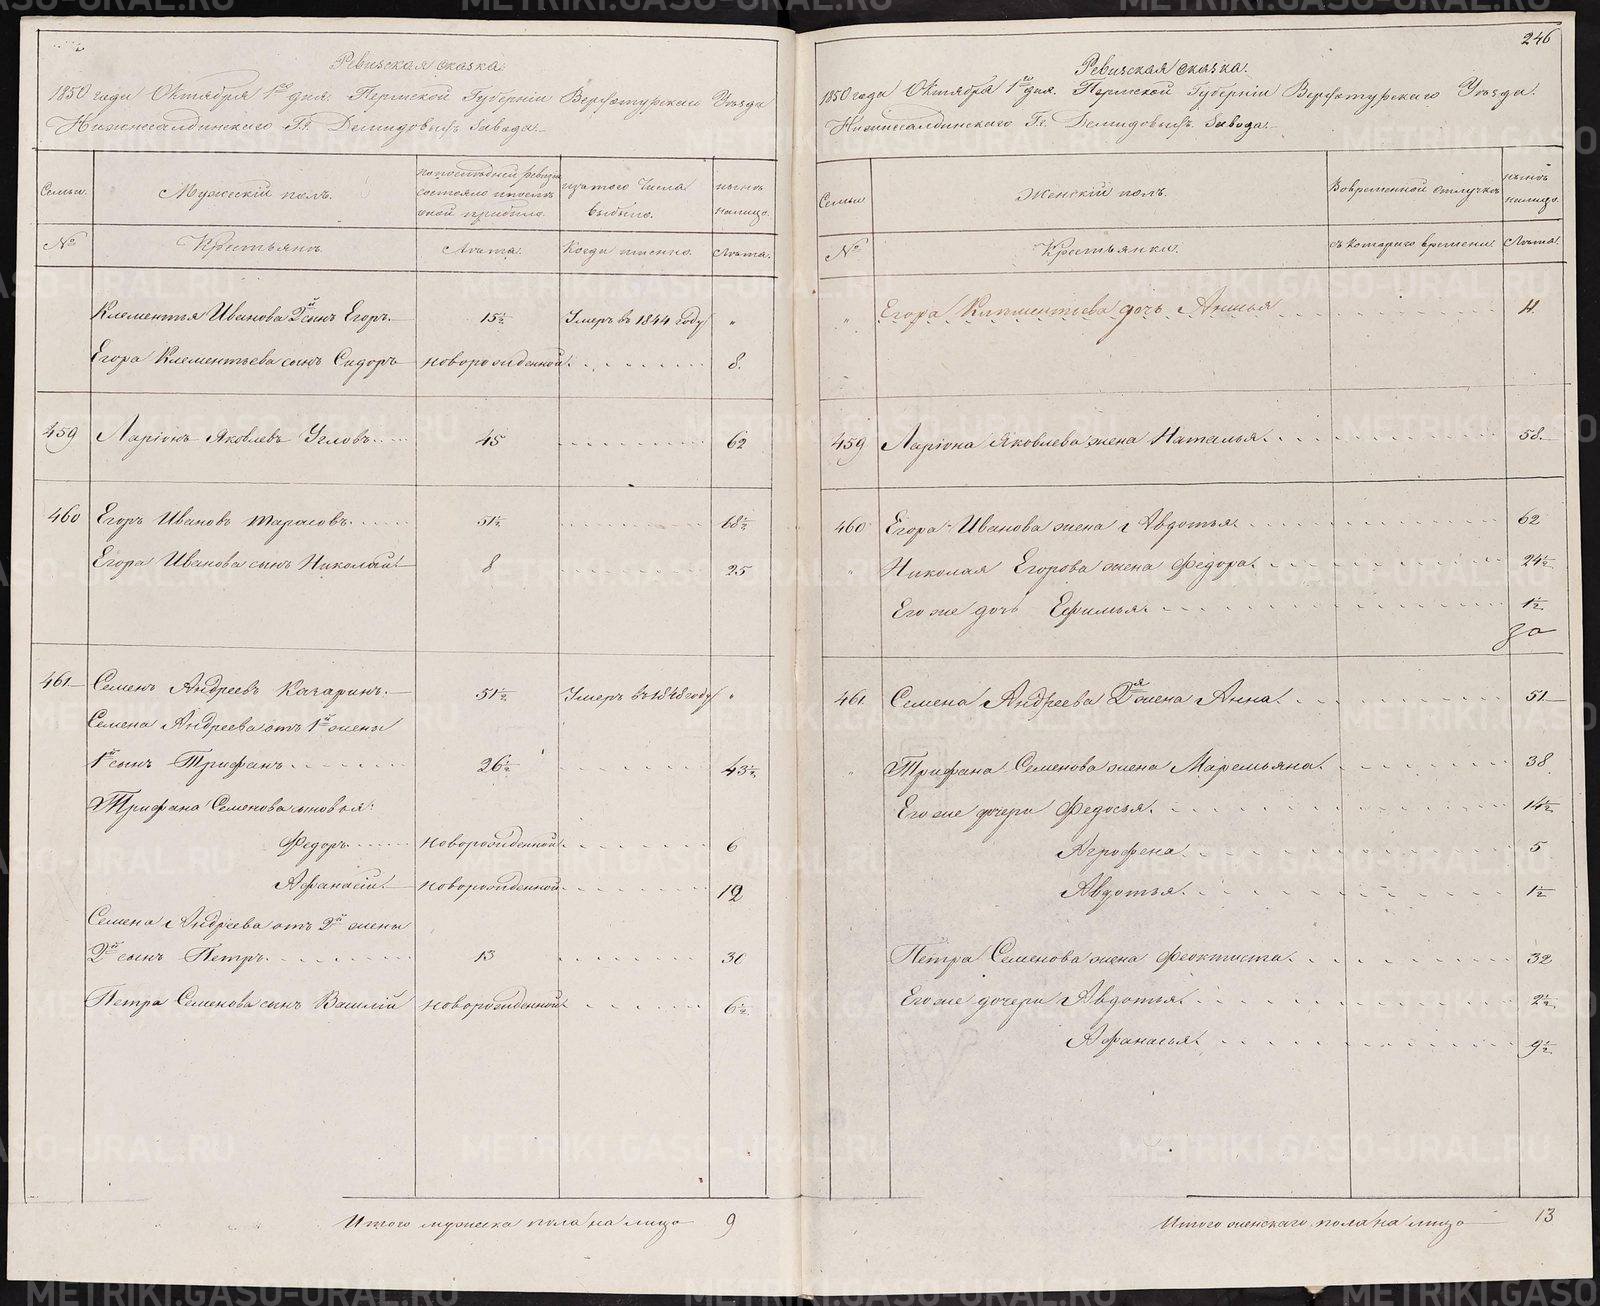 Ревизская сказка.
1850 года Октября 1го дня. Пермской Губернии Верхотурскаго Уезда
Нижнесалдинскаго Гг. Демидовыхъ Завода.
Семьи.
Мужескій полъ.
По последней ревизіи состояло и после оной прибыло.
Изъ того числа выбыло.
Ныне на лицо.
№
Крестьянъ.
Лѣта.
Когда именно.
Лѣта.
Клементья Иванова 2й сынъ Егоръ. 15½ Умеръ въ 1844 году "
Егора Клементьева сынъ Сидоръ новорожденной. 8.
459 Ларіонъ Яковлевъ Угловъ. 45 62
460 Егоръ Ивановъ Тарасовъ. 51½ 68½
Егора Иванова сынъ Николай. 8 25
461 Семенъ Андреевъ Казаринъ. 51½ Умеръ въ 1848 году "
Семена Андреева отъ 1й жены
1й сынъ Трифанъ 26½ 43½
Трифана Семенова сыновья:
Федоръ новорожденной. 6
Афанасій. новорожденной. 12
Семена Андреева отъ 2й жены
2й сынъ Петръ. 13 30
Петра Семенова сынъ Василій новорожденной. 6½
Итого мужеска пола на лицо 9
246
Ревизская сказка.
1850 года Октября 1го дня. Пермской Губерніи Верхотурскаго Уезда.
Нижнесалдинскаго Гг. Демидовыхъ Завода.
Семьи.
Женскій полъ.
Во временной отлучкѣ
Ныне на лицо.
№
Крестьянки.
съ котораго времени.
Лѣта.
" Егора Клементьева дочь Анисья 11.
459 Ларіона Яковлева жена Наталья. 58.
460 Егора Иванова жена Авдотья 62
" Николая Егорова жена Федора. 24½
Его же дочь Ефимья. 1½
461 Семена Андреева 2я жена Анна. 51
" Трифана Семенова жена Маремьяна. 38
Его же дочери Федосья. 14½
Агрофена. 5
Авдотья. 1½
Петра Семенова жена Феоктиста. 32
Его же дочери Авдотья. 2½
Афанасья. 9½
Итого женскаго пола на лицо 13
METRIKI.GASO-URAL.RU